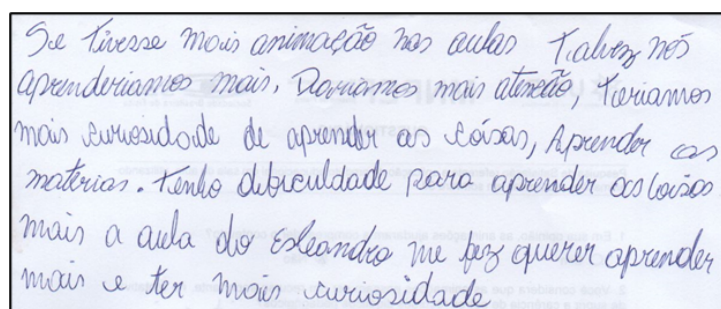 Se tivesse mais animação nas aulas Talvez nós
aprenderiamos mais, Dariamos mais atenção, Teriamos
mais curiosidade de aprender as coisas, Aprender as
matérias. Tenho dibiculdade para aprender as coisas
mais a aula do Esleandro me fez querer aprender
mais e ter mais curiosidade